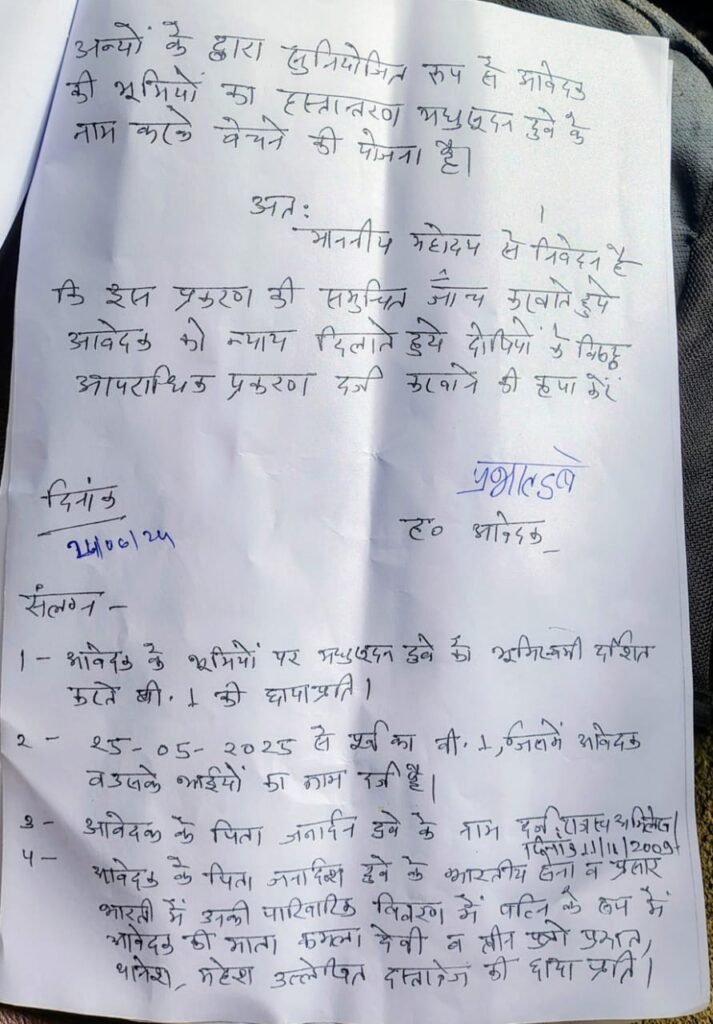 अन्यों के द्वारा सुनियोजित रूप से आवेदक
की भूमियों का हस्तान्तरण मधुसूदन दुवे के
नाम करके बेचने की योजना है।
अतः
माननीय महोदय से निवेदन है
कि इस प्रकरण की समुचित जाँच करवाते हुये
आवेदक को न्याय दिलाते हुये दोषियों के विरुद्ध
आपराधिक प्रकरण दर्ज करवाने की कृपा करें
प्रभात दुबे
दिनांक
ह० आवेदक
संलग्न -
1 - आवेदक के भूमियों पर मधुसूदन दुवे को भूमिस्वामी दर्शित
करते बी. 1 की छायाप्रति।
2 - 25-05-2025 से पूर्व का बी. 1, जिसमें आवेदक
व उसके भाईयों का नाम दर्ज है।
3 - आवेदक के पिता जनार्दन दुवे के नाम दर्ज राजस्व अभिलेख
दिनांक 11/11/2009
4 - आवेदक के पिता जनार्दन दुवे के भारतीय सेना व
भारती में उनकी पारिवारिक विवरण में पत्नि के रूप में
आवेदक की माता कमला देवी व तीन पुत्रो प्रभात,
महेश उल्लेखित दस्तावेज की छाया प्रति।